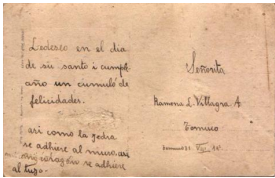 Ledeseo en el dia
de su santo i cumple
año un cumulo de
felicidades.
asi como la yedra
se adhiere al muro, asi
mi corazon se adhiere
al tuyo.
Señorita
Ramona L. Villagra A.
Temuco